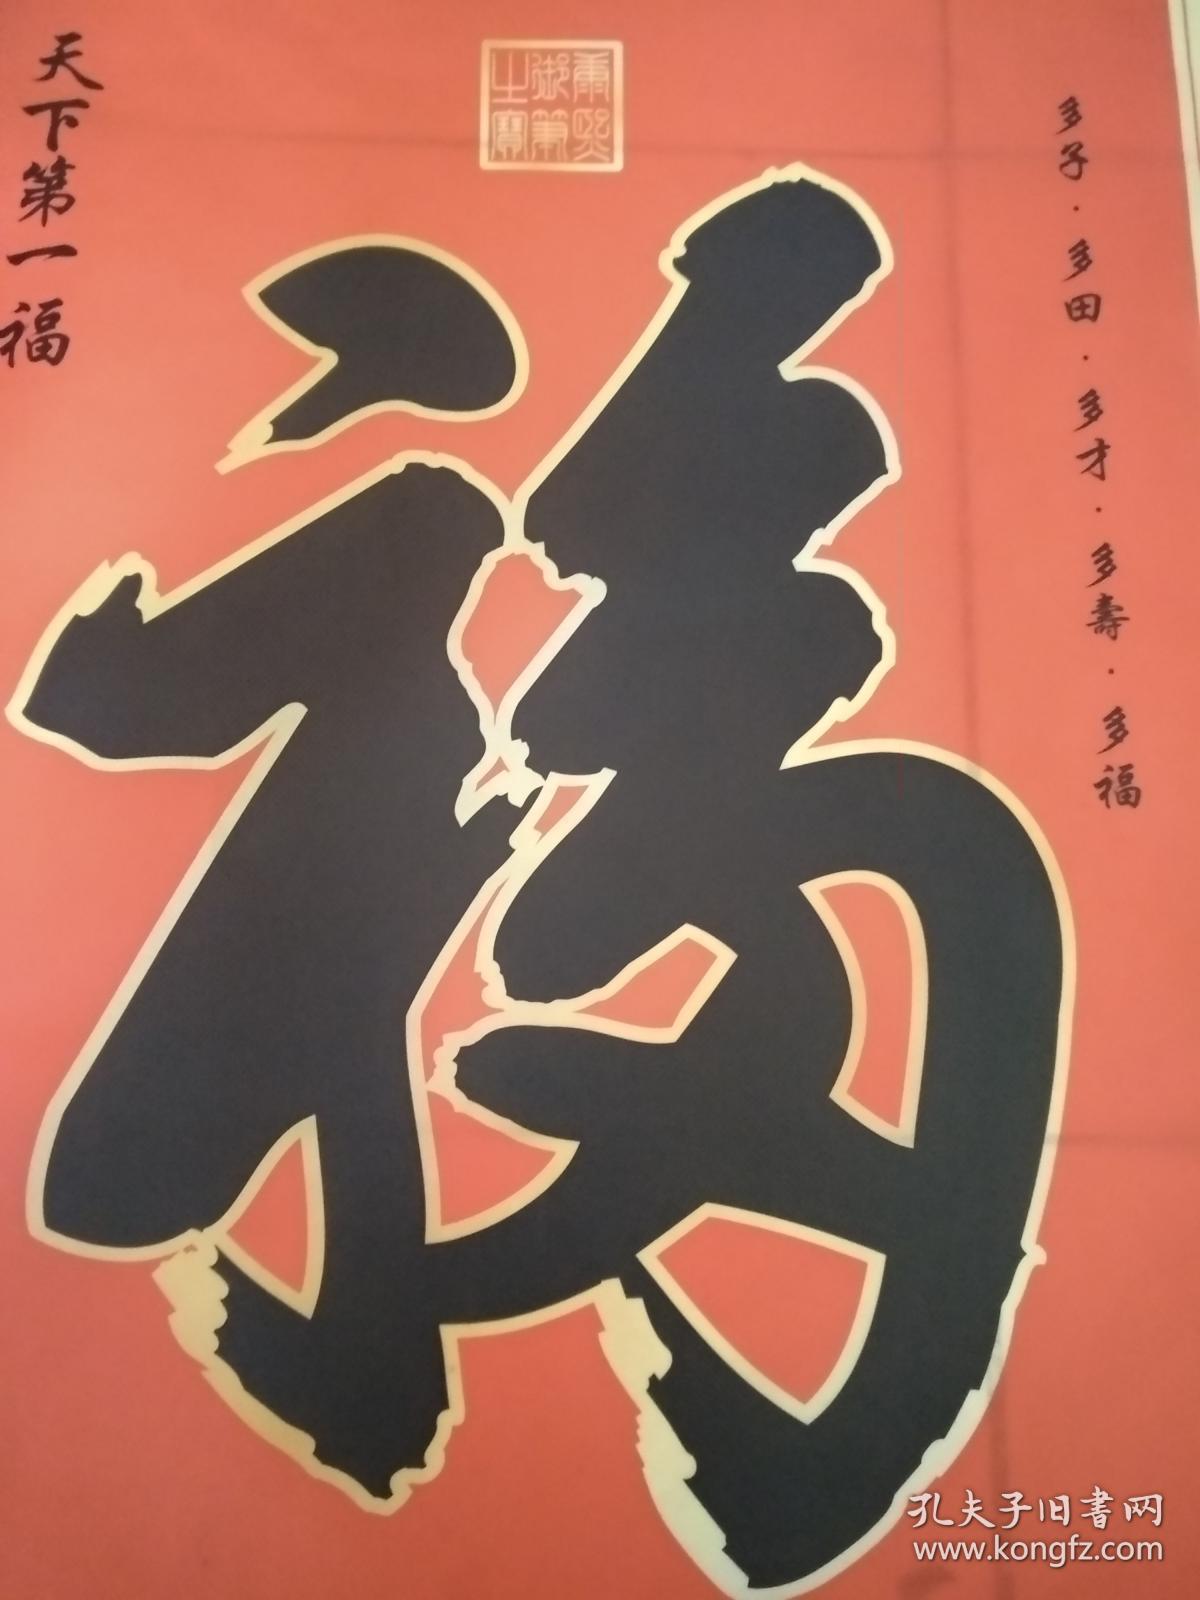 多子·多田·多才·多壽·多福
康熙御筆之寶
福
天下第一福
孔夫子旧书网
www.kongfz.com